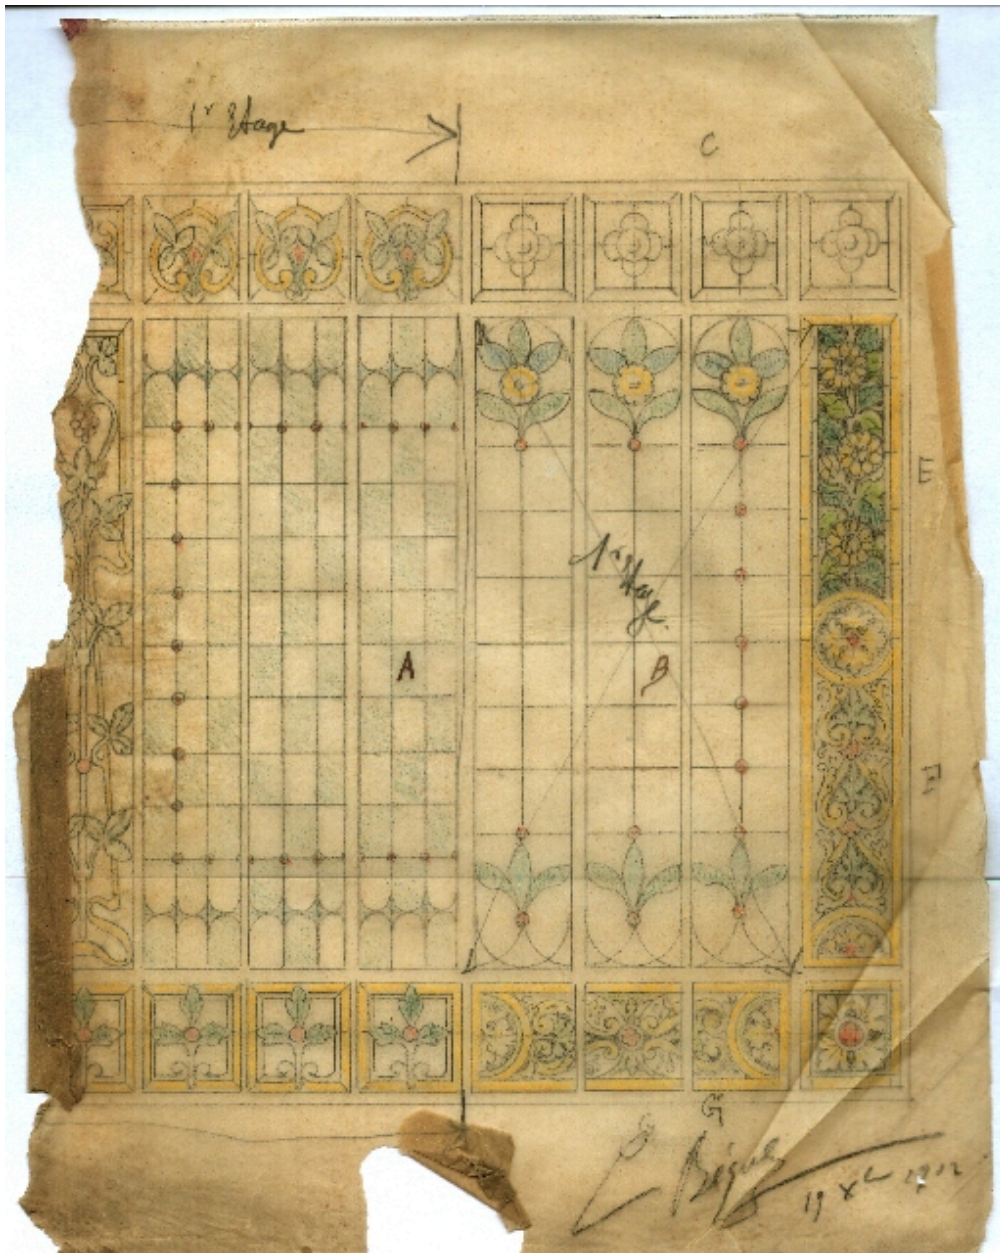 1r Etage
C
E
1r Etage
A
B
G
L Bégule
19 Xbre 1912